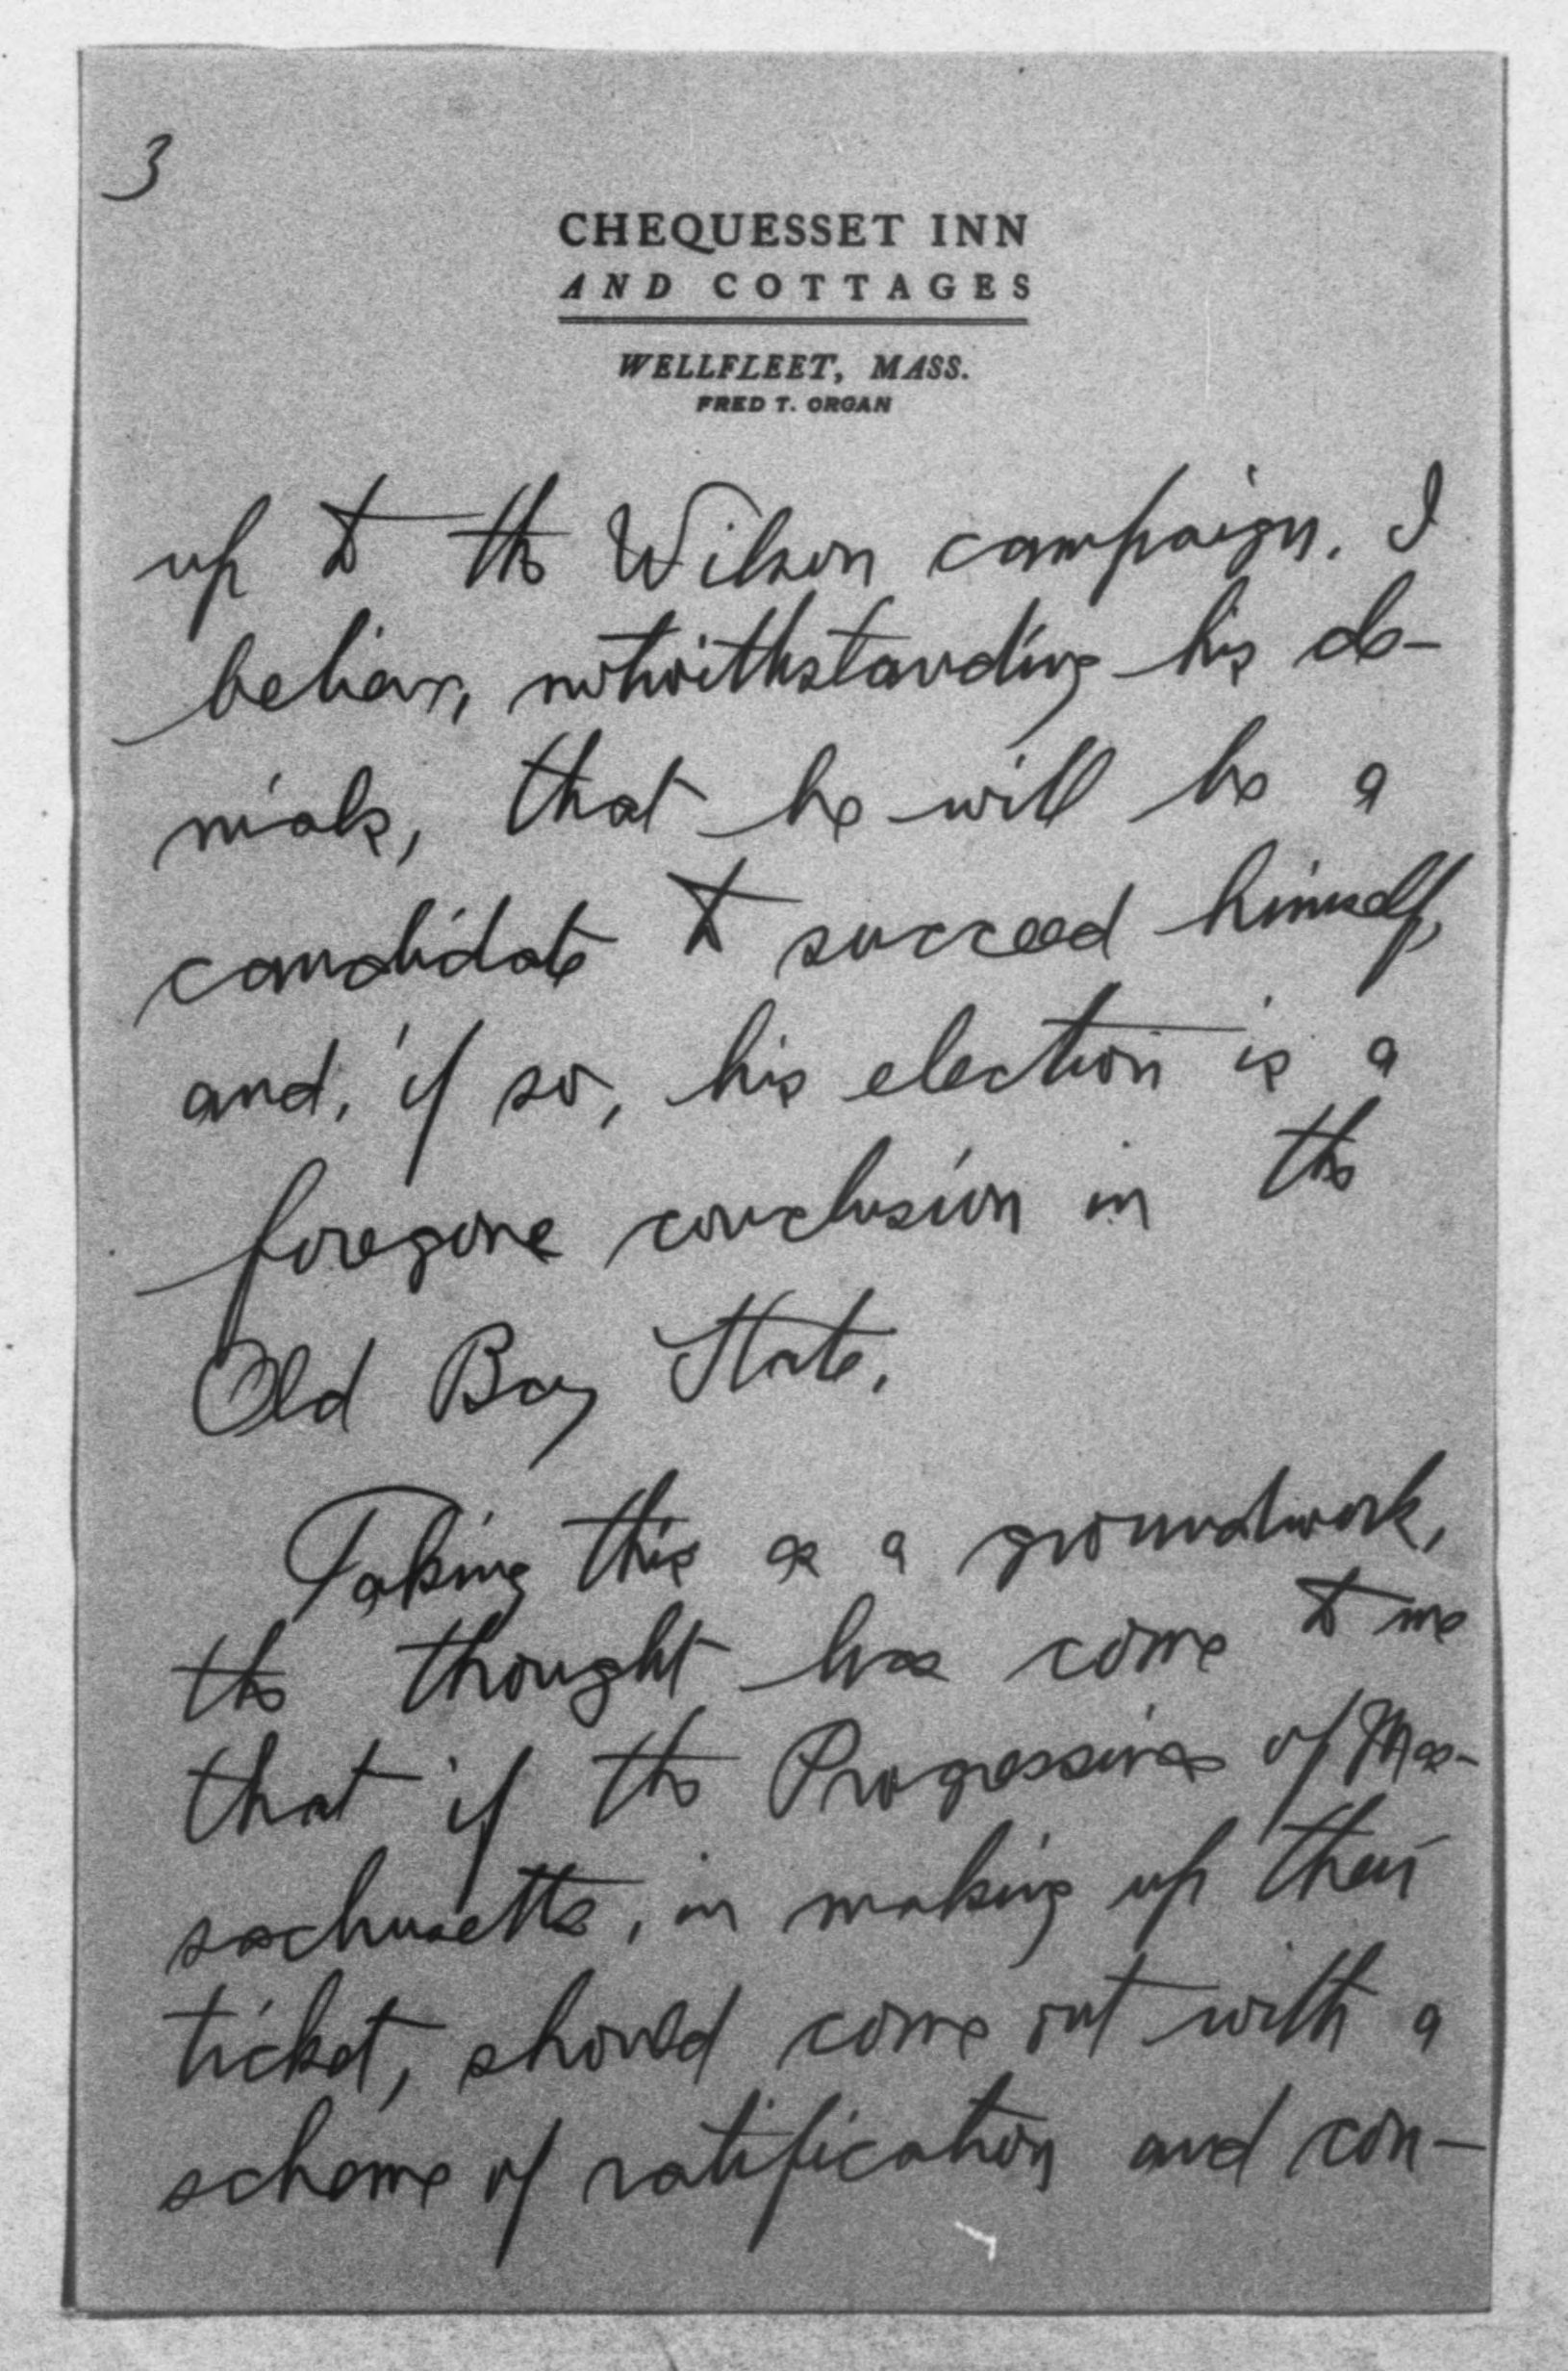 3
CHEQUESSET INN
AND COTTAGES
WELLFLEET, MASS.
FRED T. ORGAN
up to the Wilson campaign. I
believe, notwithstanding his de-
nials, that he will be a
candidate to succeed himself,
and, if so, his election is a
foregone conclusion in the
Old Bay State.
Taking this as a groundwork,
the thought has come to me
that if the Progressives of Mas-
sachusetts, in making up their
ticket, should come out with a
scheme of ratification and con-